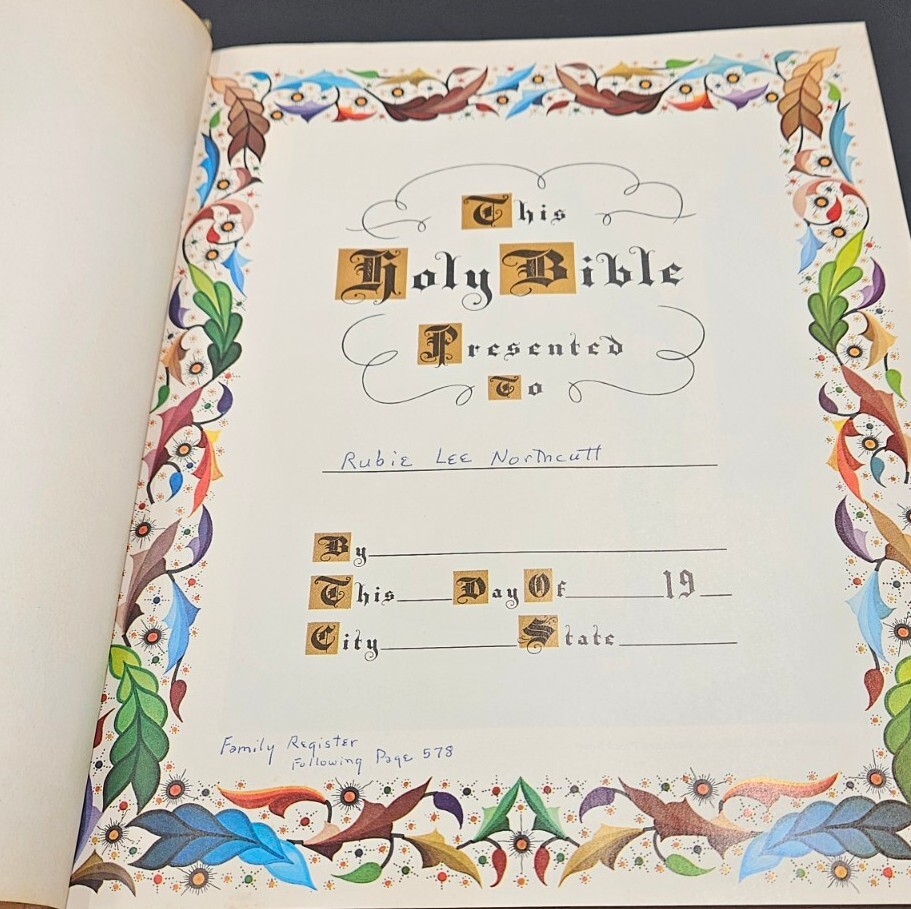 This
Holy Bible
Presented
To
Rubie Lee Northcutt
By
This Day Of 19
City State
Family Register
Following Page 578